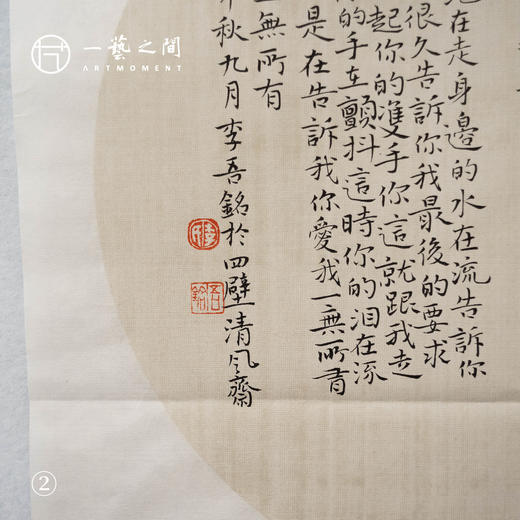 一藝之間
ARTMOMENT
在走身邊的水在流告訴你
很久告訴你我最後的要求
起你的雙手你這就跟我走
的手在顫抖這時你的泪在流
是在告訴我你愛我一無所有
無所有
秋九月李吾銘於四壁清風齋
吾銘
②